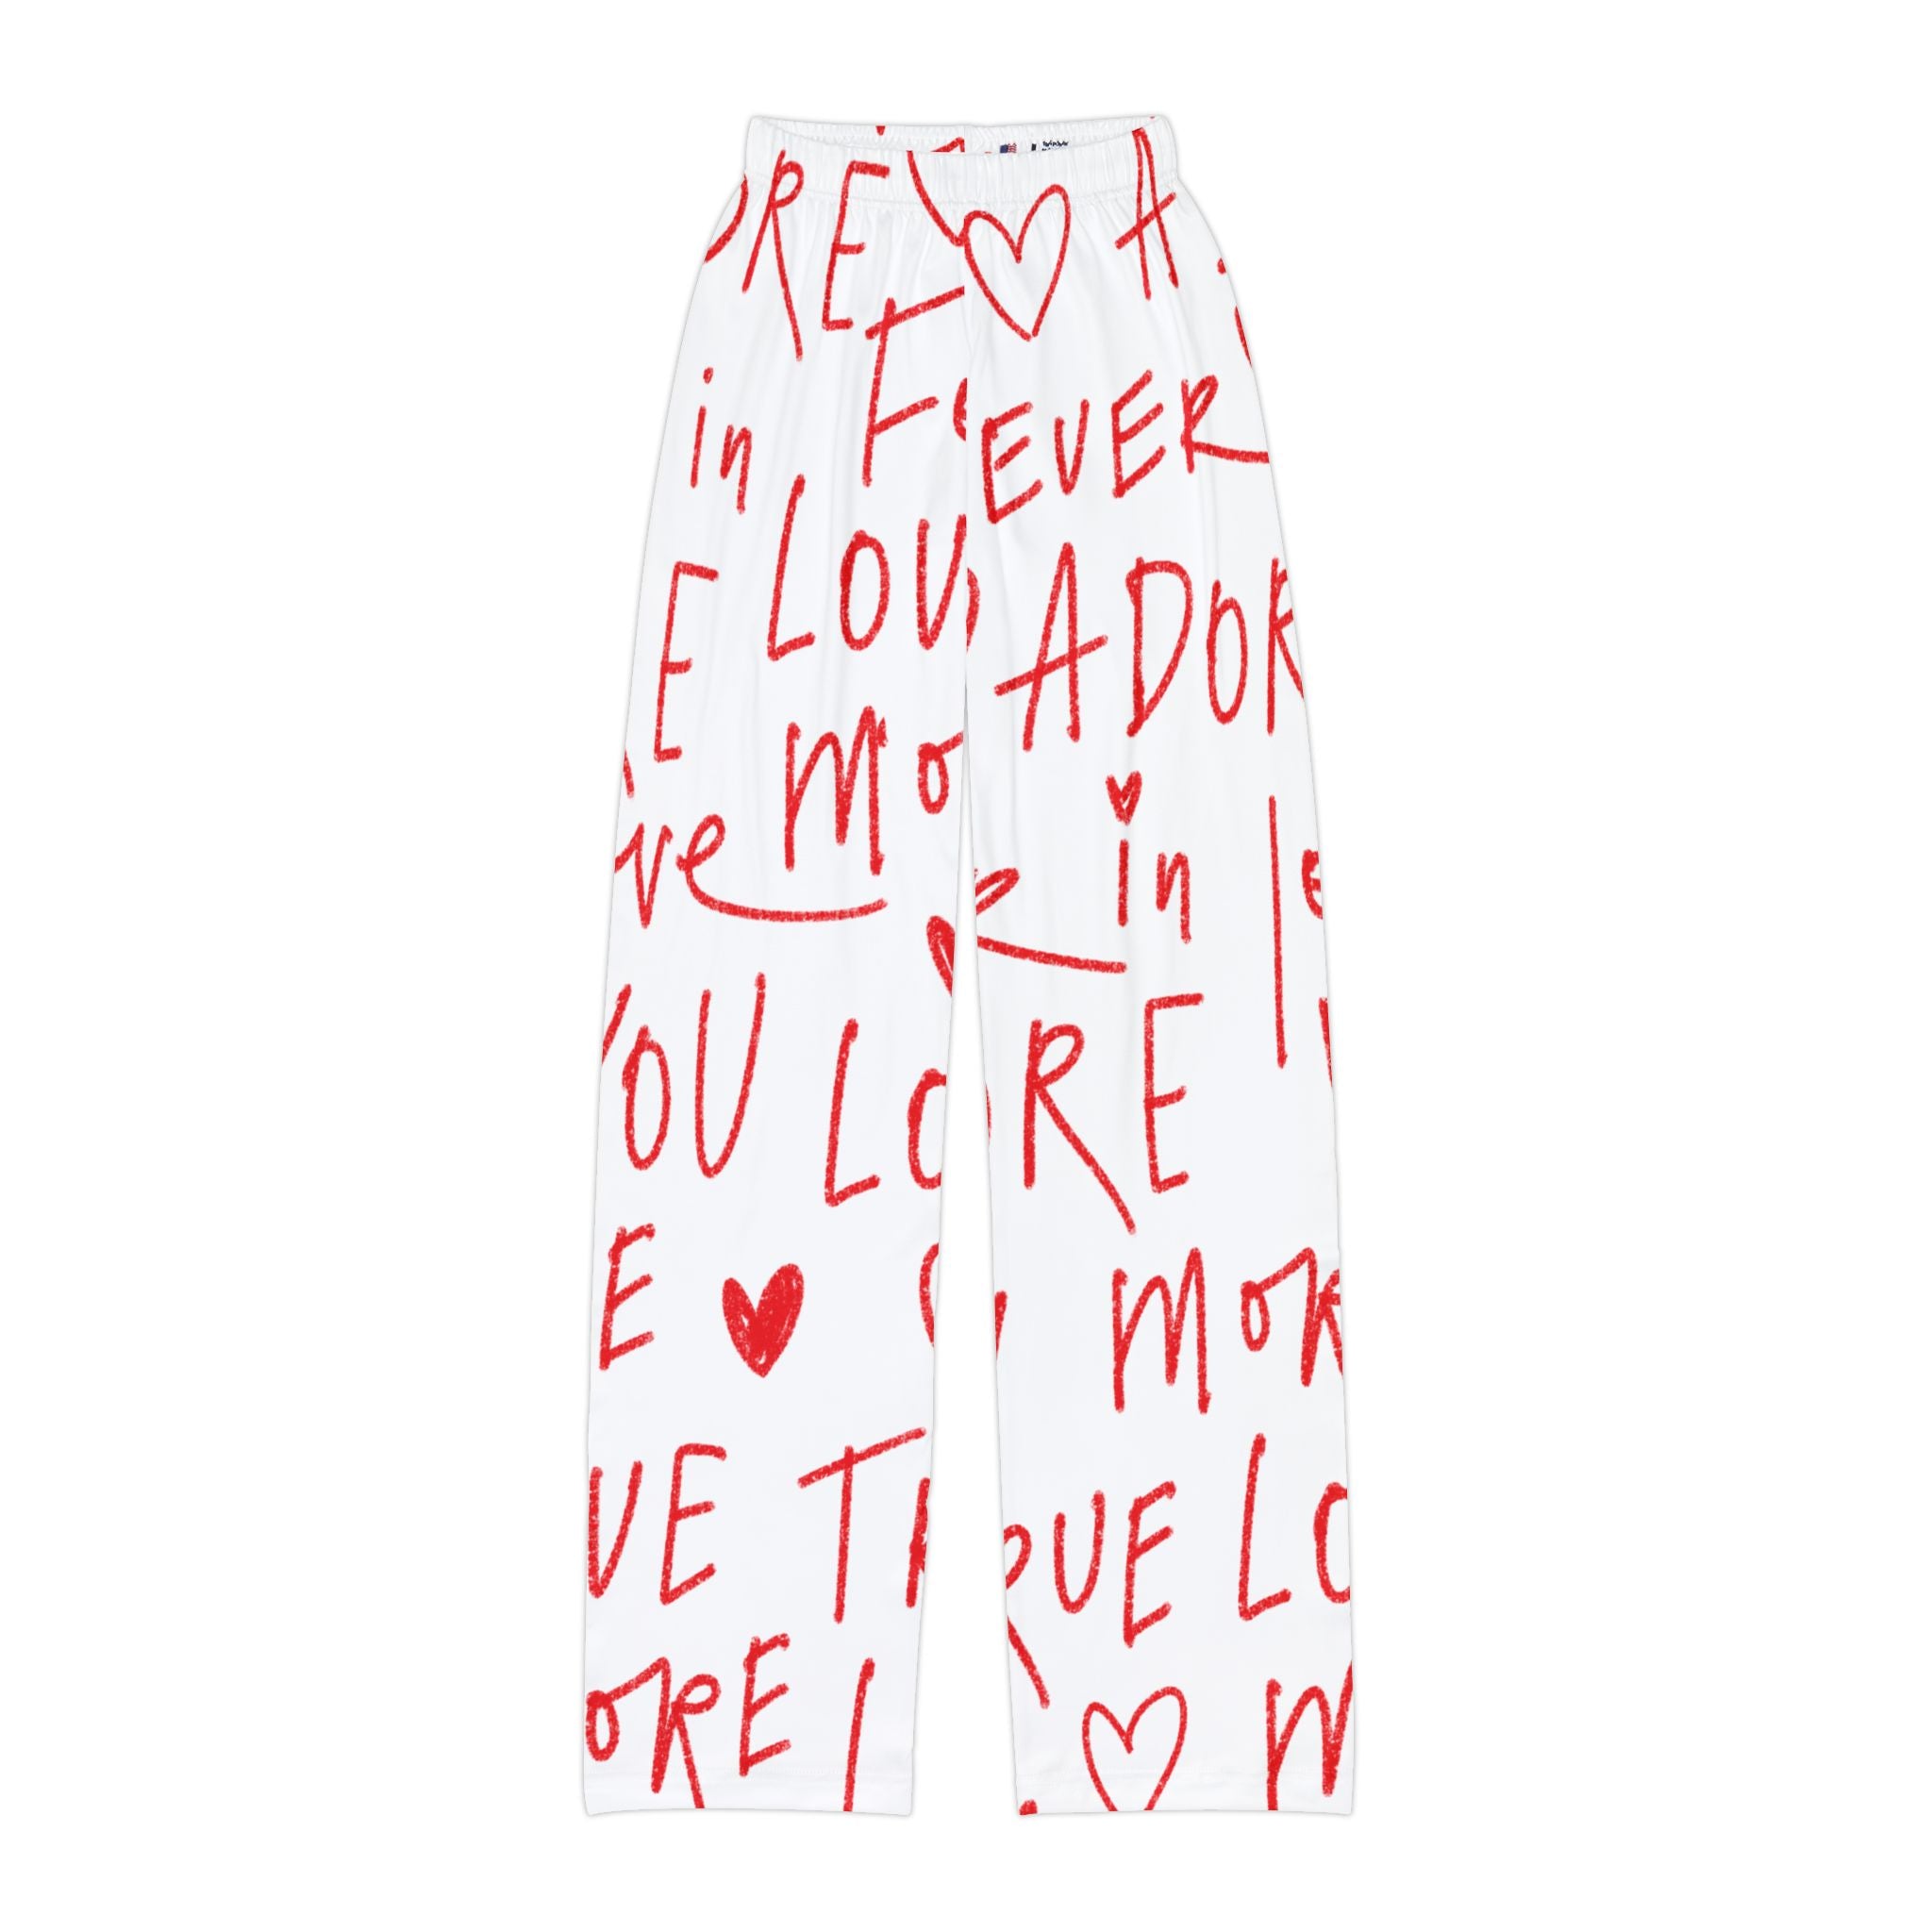 ORE A
in Fe
EVER
LOV
E ADOR
ve mo
in le
YOU LO
RE
E
mor
VE TR
RUE LO
ORE I
M